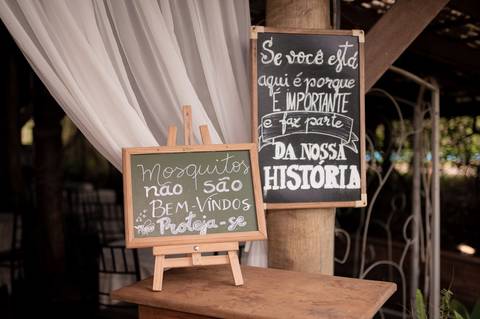 Se você está
aqui é porque
É IMPORTANTE
e faz parte
DA NOSSA
HISTÓRIA
Mosquitos
não são
BEM-VINDOS
Proteja-se